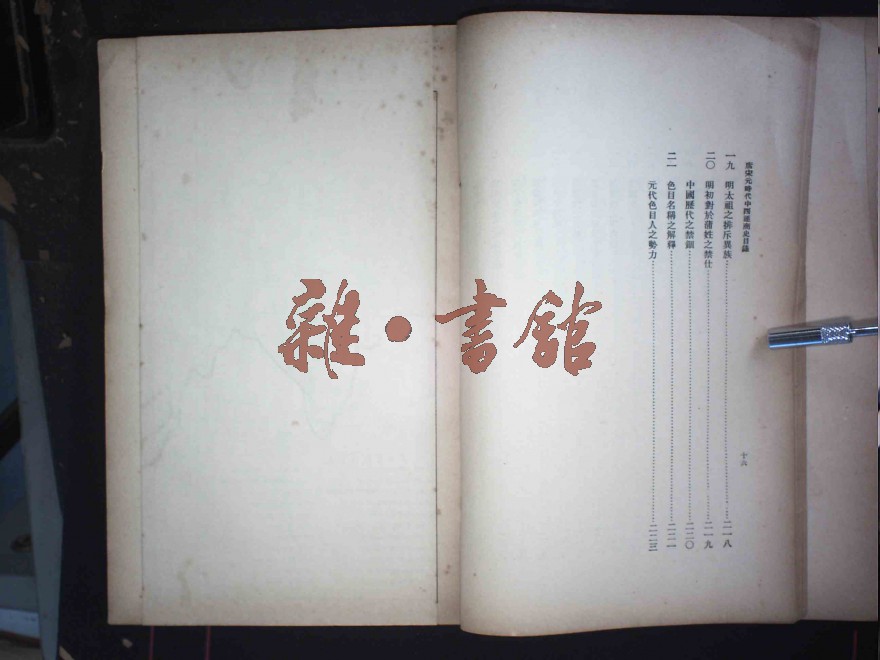 唐宋元時代中西通商史目錄
一九 明太祖之排斥異族……二一八
二〇 明初對於蒲姓之禁仕……二一九
中國歷代之禁錮……二二〇
二一 色目名稱之解釋……二二一
元代色目人之勢力……二二三
十六
雜·書館